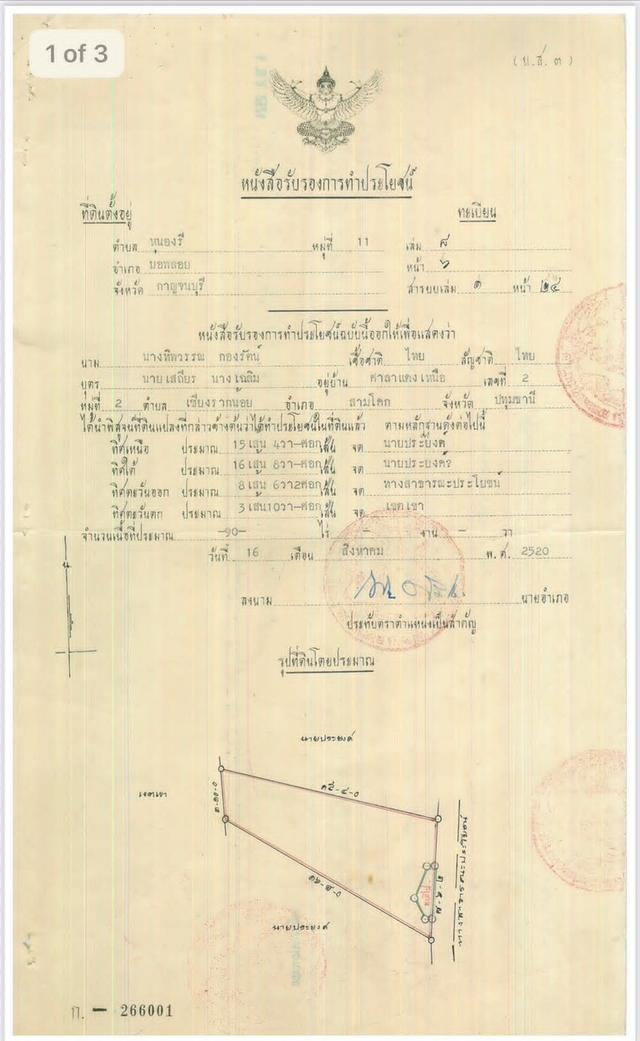 1 of 3
(น.ส. ๓)
หนังสือรับรองการทำประโยชน์
ที่ดินตั้งอยู่
ทะเบียน
ตำบล หนองรี หมู่ที่ 11 เล่ม ๘
อำเภอ บอพลอย หน้า ๖
จังหวัด กาญจนบุรี สารบบเล่ม ๑ หน้า ๒๔
หนังสือรับรองการทำประโยชน์ฉบับนี้ออกให้เพื่อแสดงว่า
นาม นางทิพวรรณ กองรัตน์ เชื้อชาติ ไทย สัญชาติ ไทย
บุตร นายเสถียร นางเฉลิม อยู่บ้าน ศาลาแดงเหนือ เลขที่ 2
หมู่ที่ 2 ตำบล เชียงรากน้อย อำเภอ สามโคก จังหวัด ปทุมธานี
ได้นำพิสูจน์ที่ดินแปลงที่กล่าวข้างต้นว่าได้ทำประโยชน์ในที่ดินแล้ว ตามหลักฐานดังต่อไปนี้
ทิศเหนือ ประมาณ 15 เส้น 4วา-ศอก เส้น จด นายประยงค์
ทิศใต้ ประมาณ 16 เส้น 8วา-ศอก เส้น จด นายประยงค์
ทิศตะวันออก ประมาณ 8 เส้น 6วา2ศอก เส้น จด ทางสาธารณะประโยชน์
ทิศตะวันตก ประมาณ 3 เส้น10วา-ศอก เส้น จด เขตเขา
จำนวนเนื้อที่ประมาณ -90- ไร่ - งาน - วา
วันที่ 16 เดือน สิงหาคม พ.ศ. 2520
ลงนาม นายอำเภอ
ประทับตราตำแหน่งเป็นสำคัญ
รูปที่ดินโดยประมาณ
นายประยงค์
๑๕-๔-๐
เขตเขา
๓-๑๐-๐
๘-๖-๒
ทางสาธารณประโยชน์
๑๖-๘-๐
นายประยงค์
ก. - 266001